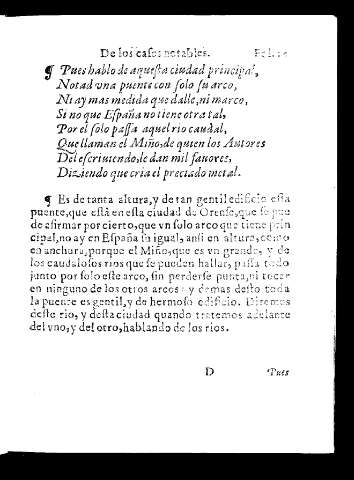 De los casos notables. Fol.
¶ Pues hablo de aquesta ciudad principal,
Notad vna puente con solo su arco,
Ni ay mas medida que dalle, ni marco,
Si no que España no tiene otra tal,
Por el solo passa aquel rio caudal,
Que llaman el Miño, de quien los Autores
Del escriuiendo, le dan mil fauores,
Diziendo que cria el preciado metal.
¶ Es de tanta altura, y de tan gentil edificio esta
puente, que està en esta ciudad de Orense, que se pue
de afirmar por cierto, que vn solo arco que tiene prin
cipal, no ay en España su igual, ansi en altura, como
en anchura, porque el Miño, que es vn grande, y de
los caudalosos rios que se pueden hallar, passa todo
junto por solo este arco, sin perderse punta, ni tocar
en ninguno de los otros arcos: y demas desto toda
la puente es gentil, y de hermoso edificio. Diremos
deste rio, y desta ciudad quando tratemos adelante
del vno, y del otro, hablando de los rios.
D Pues